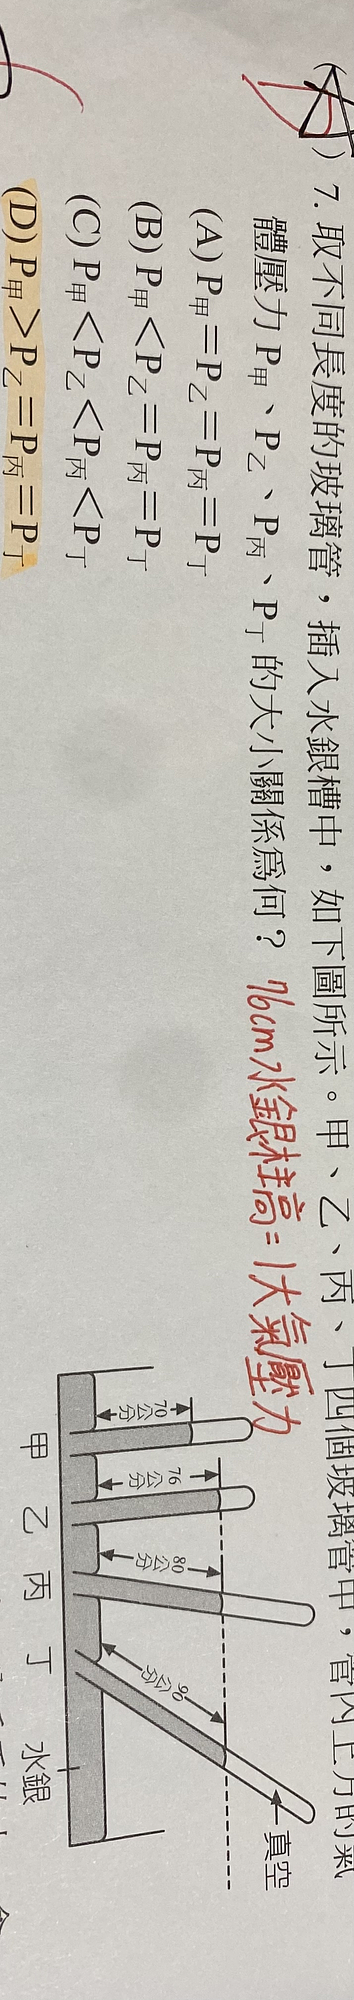 ( ) 7. 取不同長度的玻璃管，插入水銀槽中，如下圖所示。甲、乙、丙、丁四個玻璃管中，管內上方的氣
體壓力 P甲、P乙、P丙、P丁 的大小關係為何？ 76cm水銀柱高=1大氣壓力
(A) P甲＝P乙＝P丙＝P丁
(B) P甲＜P乙＝P丙＝P丁
(C) P甲＜P乙＜P丙＜P丁
(D) P甲＞P乙＝P丙＝P丁
真空
70公分
76公分
80公分
90公分
甲 乙 丙 丁 水銀